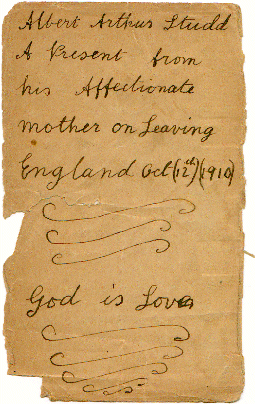 Albert Arthur Studd
A Present from
his Affectionate
mother on Leaving
England Oct (12th) (1910)
God is Love